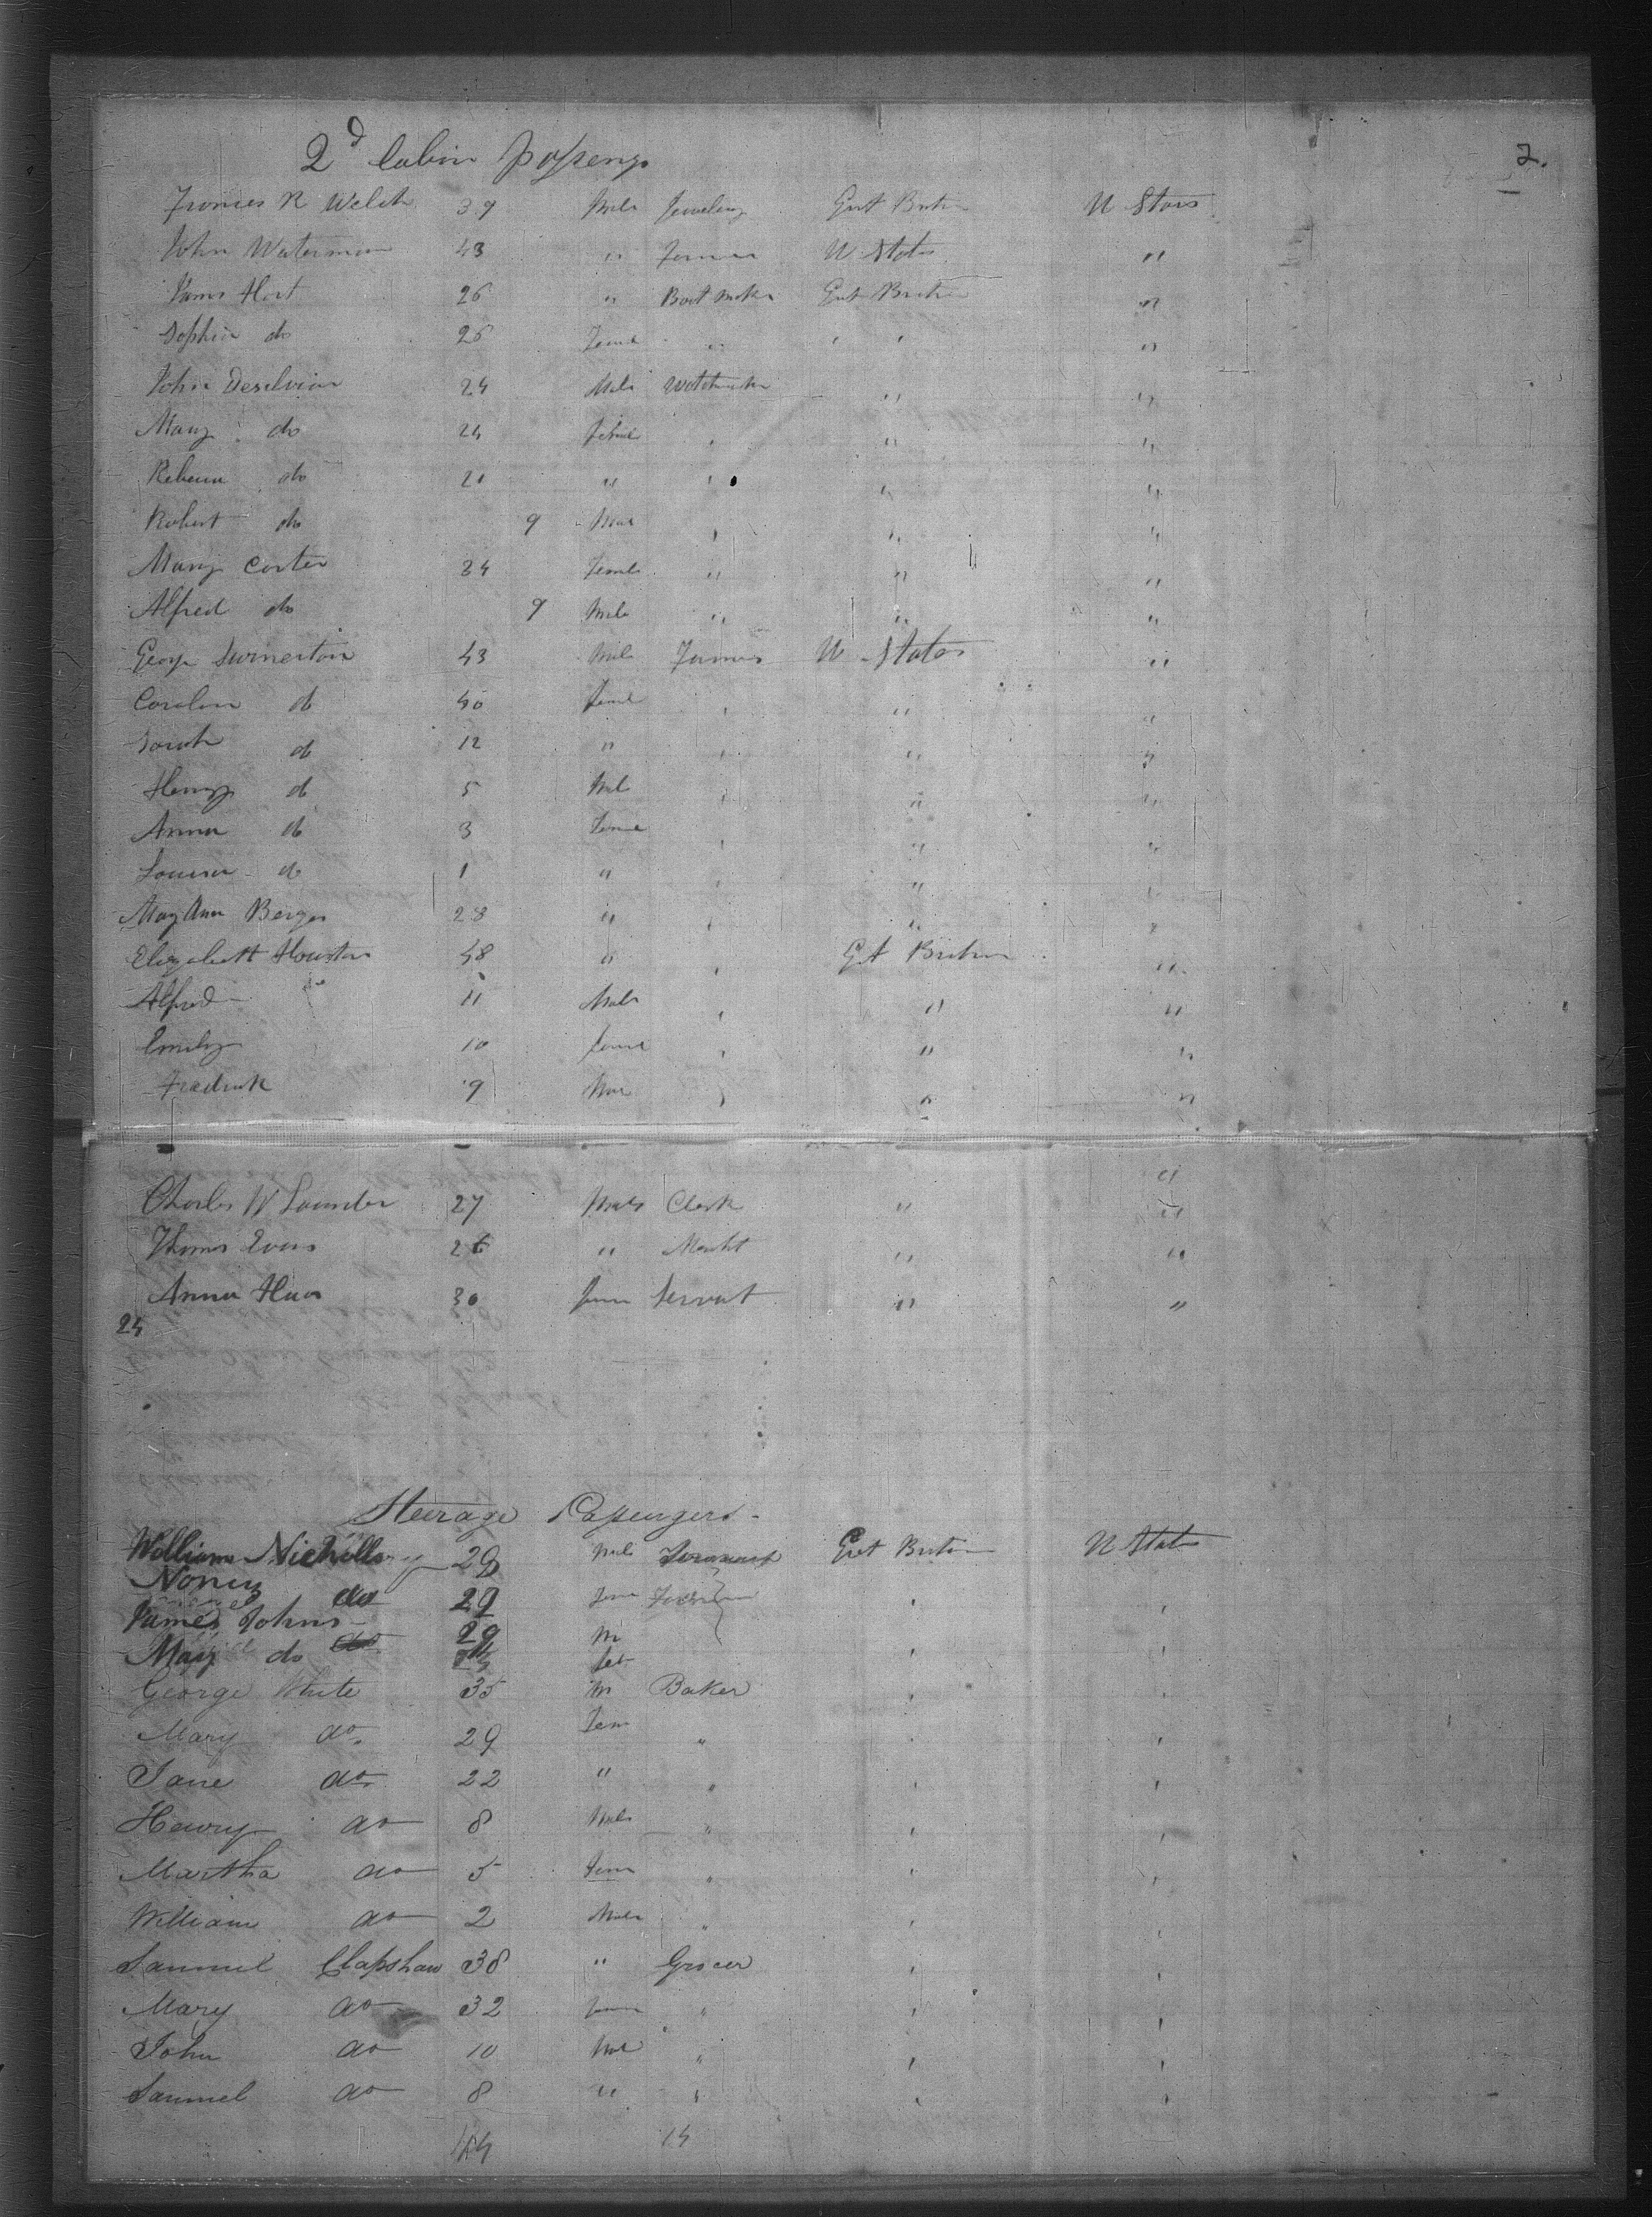 2d Cabin Passengs
2.
Frances R Welch 39 Male Great Britn U States
John Waterman 43 " Farmer U States "
James Hart 26 " Boot Maker Grt Britn "
Sophia do 26 Femal " ' ' "
John 24 Male Watchmaker " "
Mary do 24 Femal ' " "
Rebecca do 21 " ' " "
Robert do 9 Male ' " "
Mary Carter 34 Femal " " "
Alfred do 9 Male " " "
George Swinerton 43 Male Farmer U States "
Carolin do 40 Femal ' " "
Sarah do 12 " ' " "
Henry do 5 Mal ' " "
Anna do 3 Feme ' " "
Louisa do 1 " ' " "
Mary Ann Berger 28 " ' " "
Elizabeth Houston 48 " ' Grt Britain "
Alfred 11 Male ' " "
Emily 10 Feme ' " "
Fredrick 9 Mal ' " "
"
Charles W Saunder 27 Male Clerk " "
Thomas Evans 26 " Mercht " "
Anna 30 Fem Servant " "
24
Steerage Passengers -
William Nicholls 29 Male Grt Britain U States
Nancy do 29 Fem ' '
James Johns 29 m
Mary do Fe ' '
George White 35 m Baker ' '
Mary do. 29 Fem " ' '
Jane do 22 " " ' '
Henry do 8 Male " ' '
Martha do 5 Fem " ' '
William do 2 Male " ' '
Samuel Clapshaw 38 " Grocer ' '
Mary do 32 Fem " ' '
John do 10 Mal " ' '
Samuel do 8 " " ' '
14